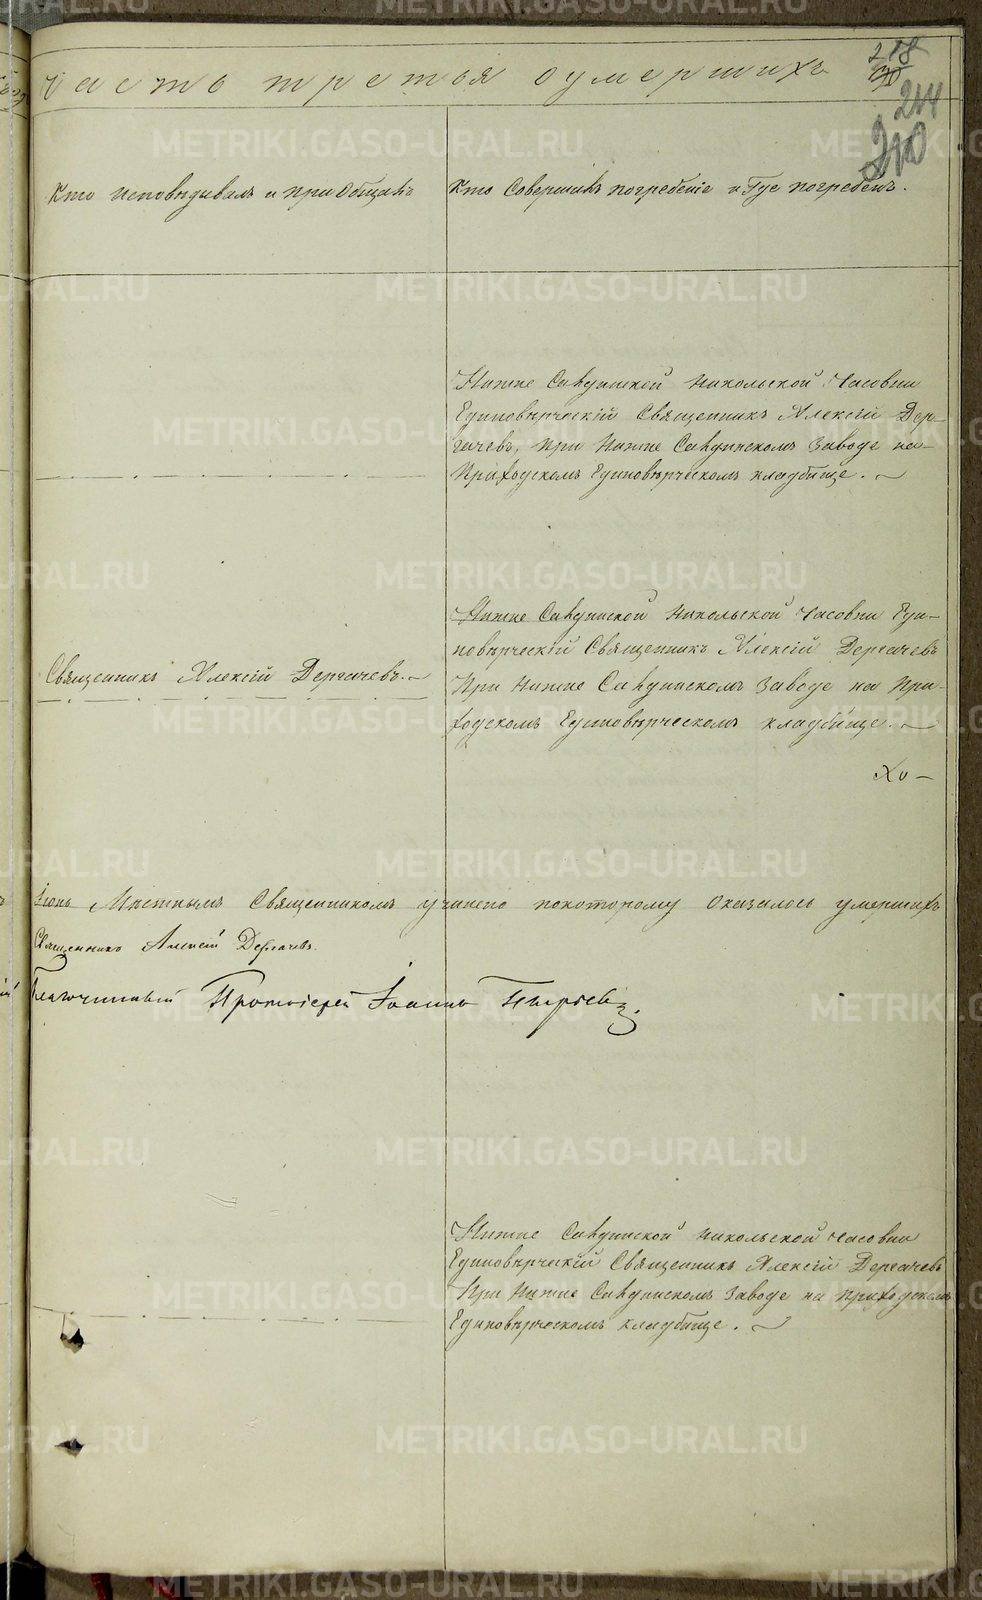 часть третья оумерших
218
244
210
Кто исповѣдывалъ и приобщалъ
Кто Совершилъ погребеніе и Где погребенъ.
Нижне Салдинской Никольской Часовни
Единовѣрческій Священникъ Алексій Дер-
гачевъ, при Нижне Салдинскомъ Заводе на
Приходскомъ Единовѣрческомъ кладбище.
Нижне Салдинской Никольской Часовни Еди-
новѣрческій Священникъ Алексій Дергачевъ
Священникъ Алексій Дергачевъ.
При Нижне Салдинскомъ Заводе на При-
ходскомъ Единовѣрческомъ кладбище.
Местнымъ Священникомъ учинено покоторому Оказалось умершихъ
Священникъ Алексій Дергачевъ.
Благочинный Протоіерей Іоаннъ
Нижне Салдинской Никольской Часовни
Единовѣрческій Священникъ Алексій Дергачевъ
При Нижне Салдинскомъ Заводе на Приходскомъ
Единовѣрческомъ кладбище.
METRIKI.GASO-URAL.RU